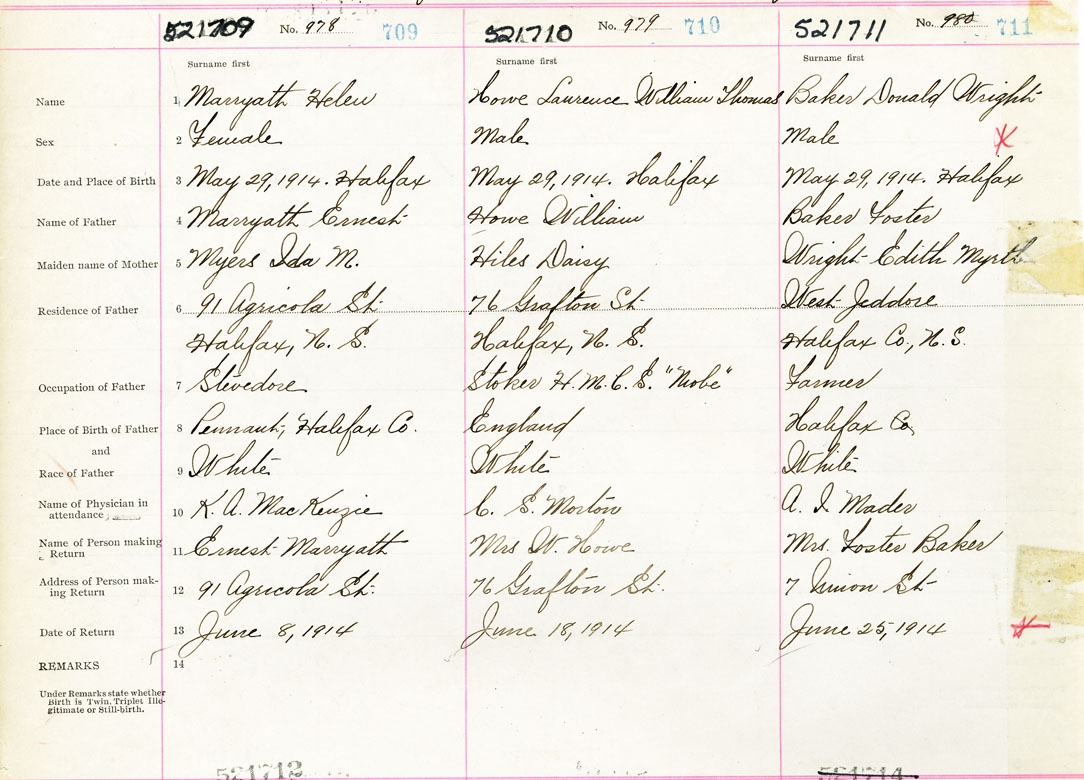 521709 No. 978 709
521710 No. 979 710
521711 No. 980 711
Surname first Surname first Surname first
Name 1 Marryath Helen Howe Laurence William Thomas Baker Donald Wright
Sex 2 Female Male Male
Date and Place of Birth 3 May 29, 1914. Halifax May 29, 1914. Halifax May 29, 1914. Halifax
Name of Father 4 Marryath Ernest Howe William Baker Foster
Maiden name of Mother 5 Myers Ida M. Hiles Daisy Wright Edith Myrth
Residence of Father 6 91 Agricola St. 76 Grafton St. West Jeddore
Halifax, N. S. Halifax, N. S. Halifax Co., N. S.
Occupation of Father 7 Stevedore Stoker H.M.C.S. "Niobe" Farmer
Place of Birth of Father 8 Pennant, Halifax Co. England Halifax Co.
and
Race of Father 9 White White White
Name of Physician in
attendance 10 K. A. MacKenzie C. S. Morton A. I. Mader
Name of Person making
Return 11 Ernest Marryath Mrs W. Howe Mrs. Foster Baker
Address of Person mak-
ing Return 12 91 Agricola St. 76 Grafton St. 7 Union St
Date of Return 13 June 8, 1914 June 18, 1914 June 25, 1914
REMARKS 14
Under Remarks state whether
Birth is Twin, Triplet Ille-
gitimate or Still-birth.
521712 521714